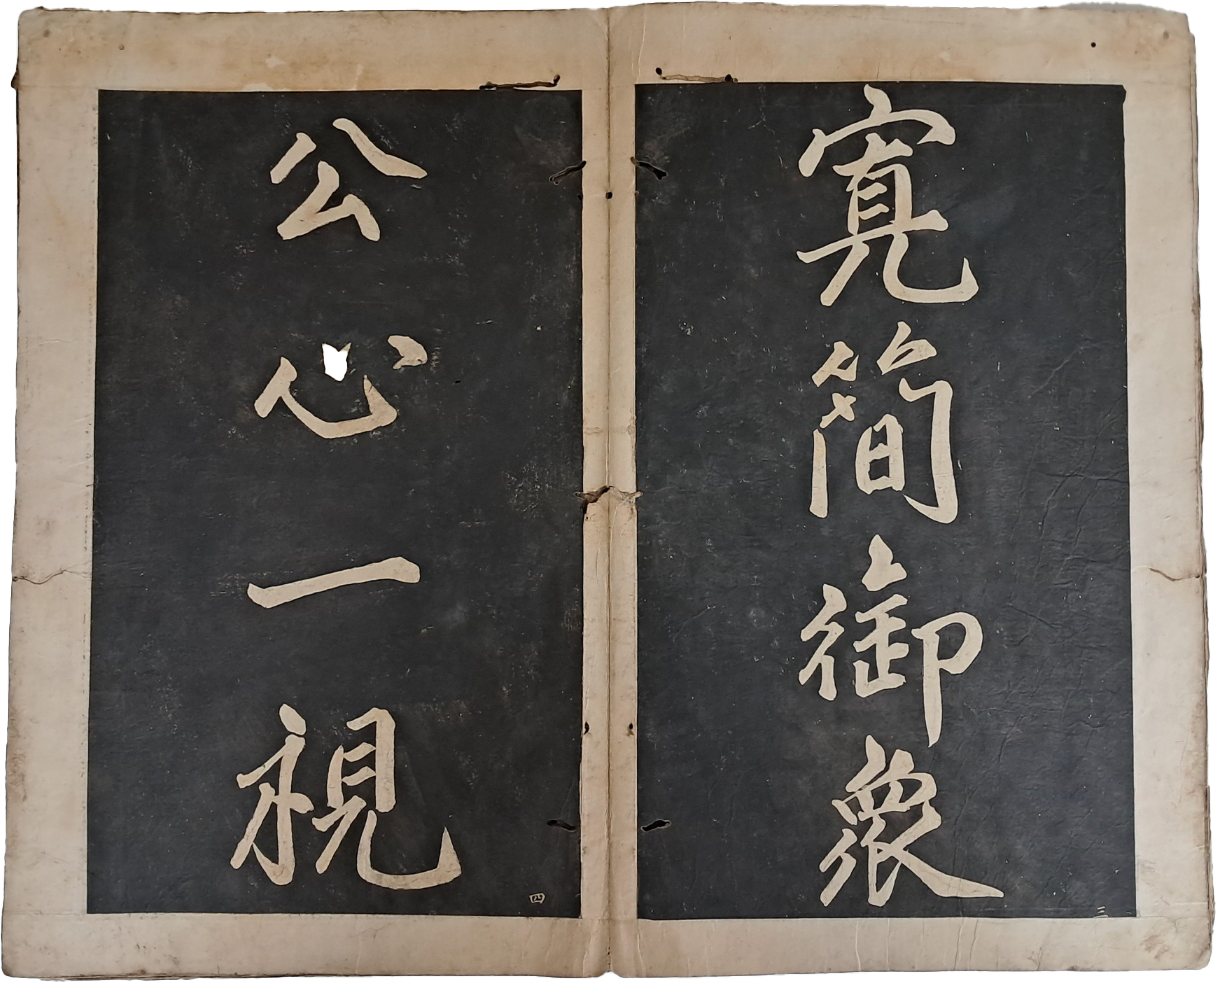 寛簡御衆
三
公心一視
四